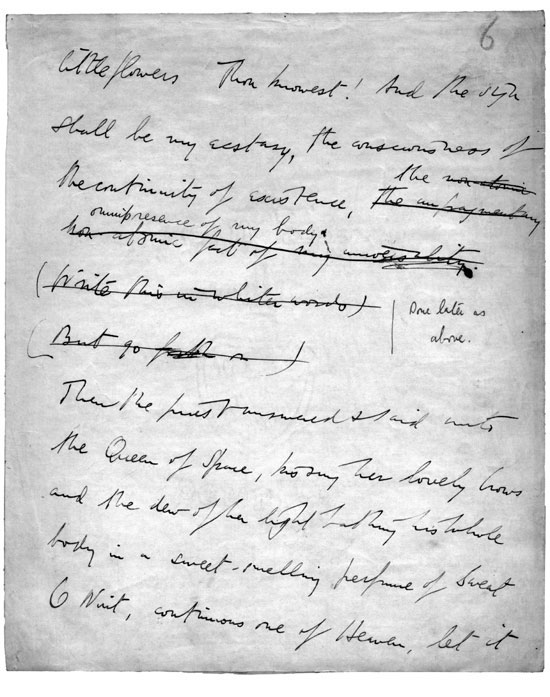 6
little flowers Thou knowest! And the sign
shall be my ecstasy, the consciousness of
the continuity of existence, the unfragmentary
the non-atomic
non-atomic fact of my universality.
omnipresence of my body.
(Write this in whiter words)
Done later as
above.
(But go forth on)
Then the priest answered & said unto
the Queen of Space, kissing her lovely brows
and the dew of her light bathing his whole
body in a sweet-smelling perfume of sweat
O Nuit, continuous one of Heaven, let it